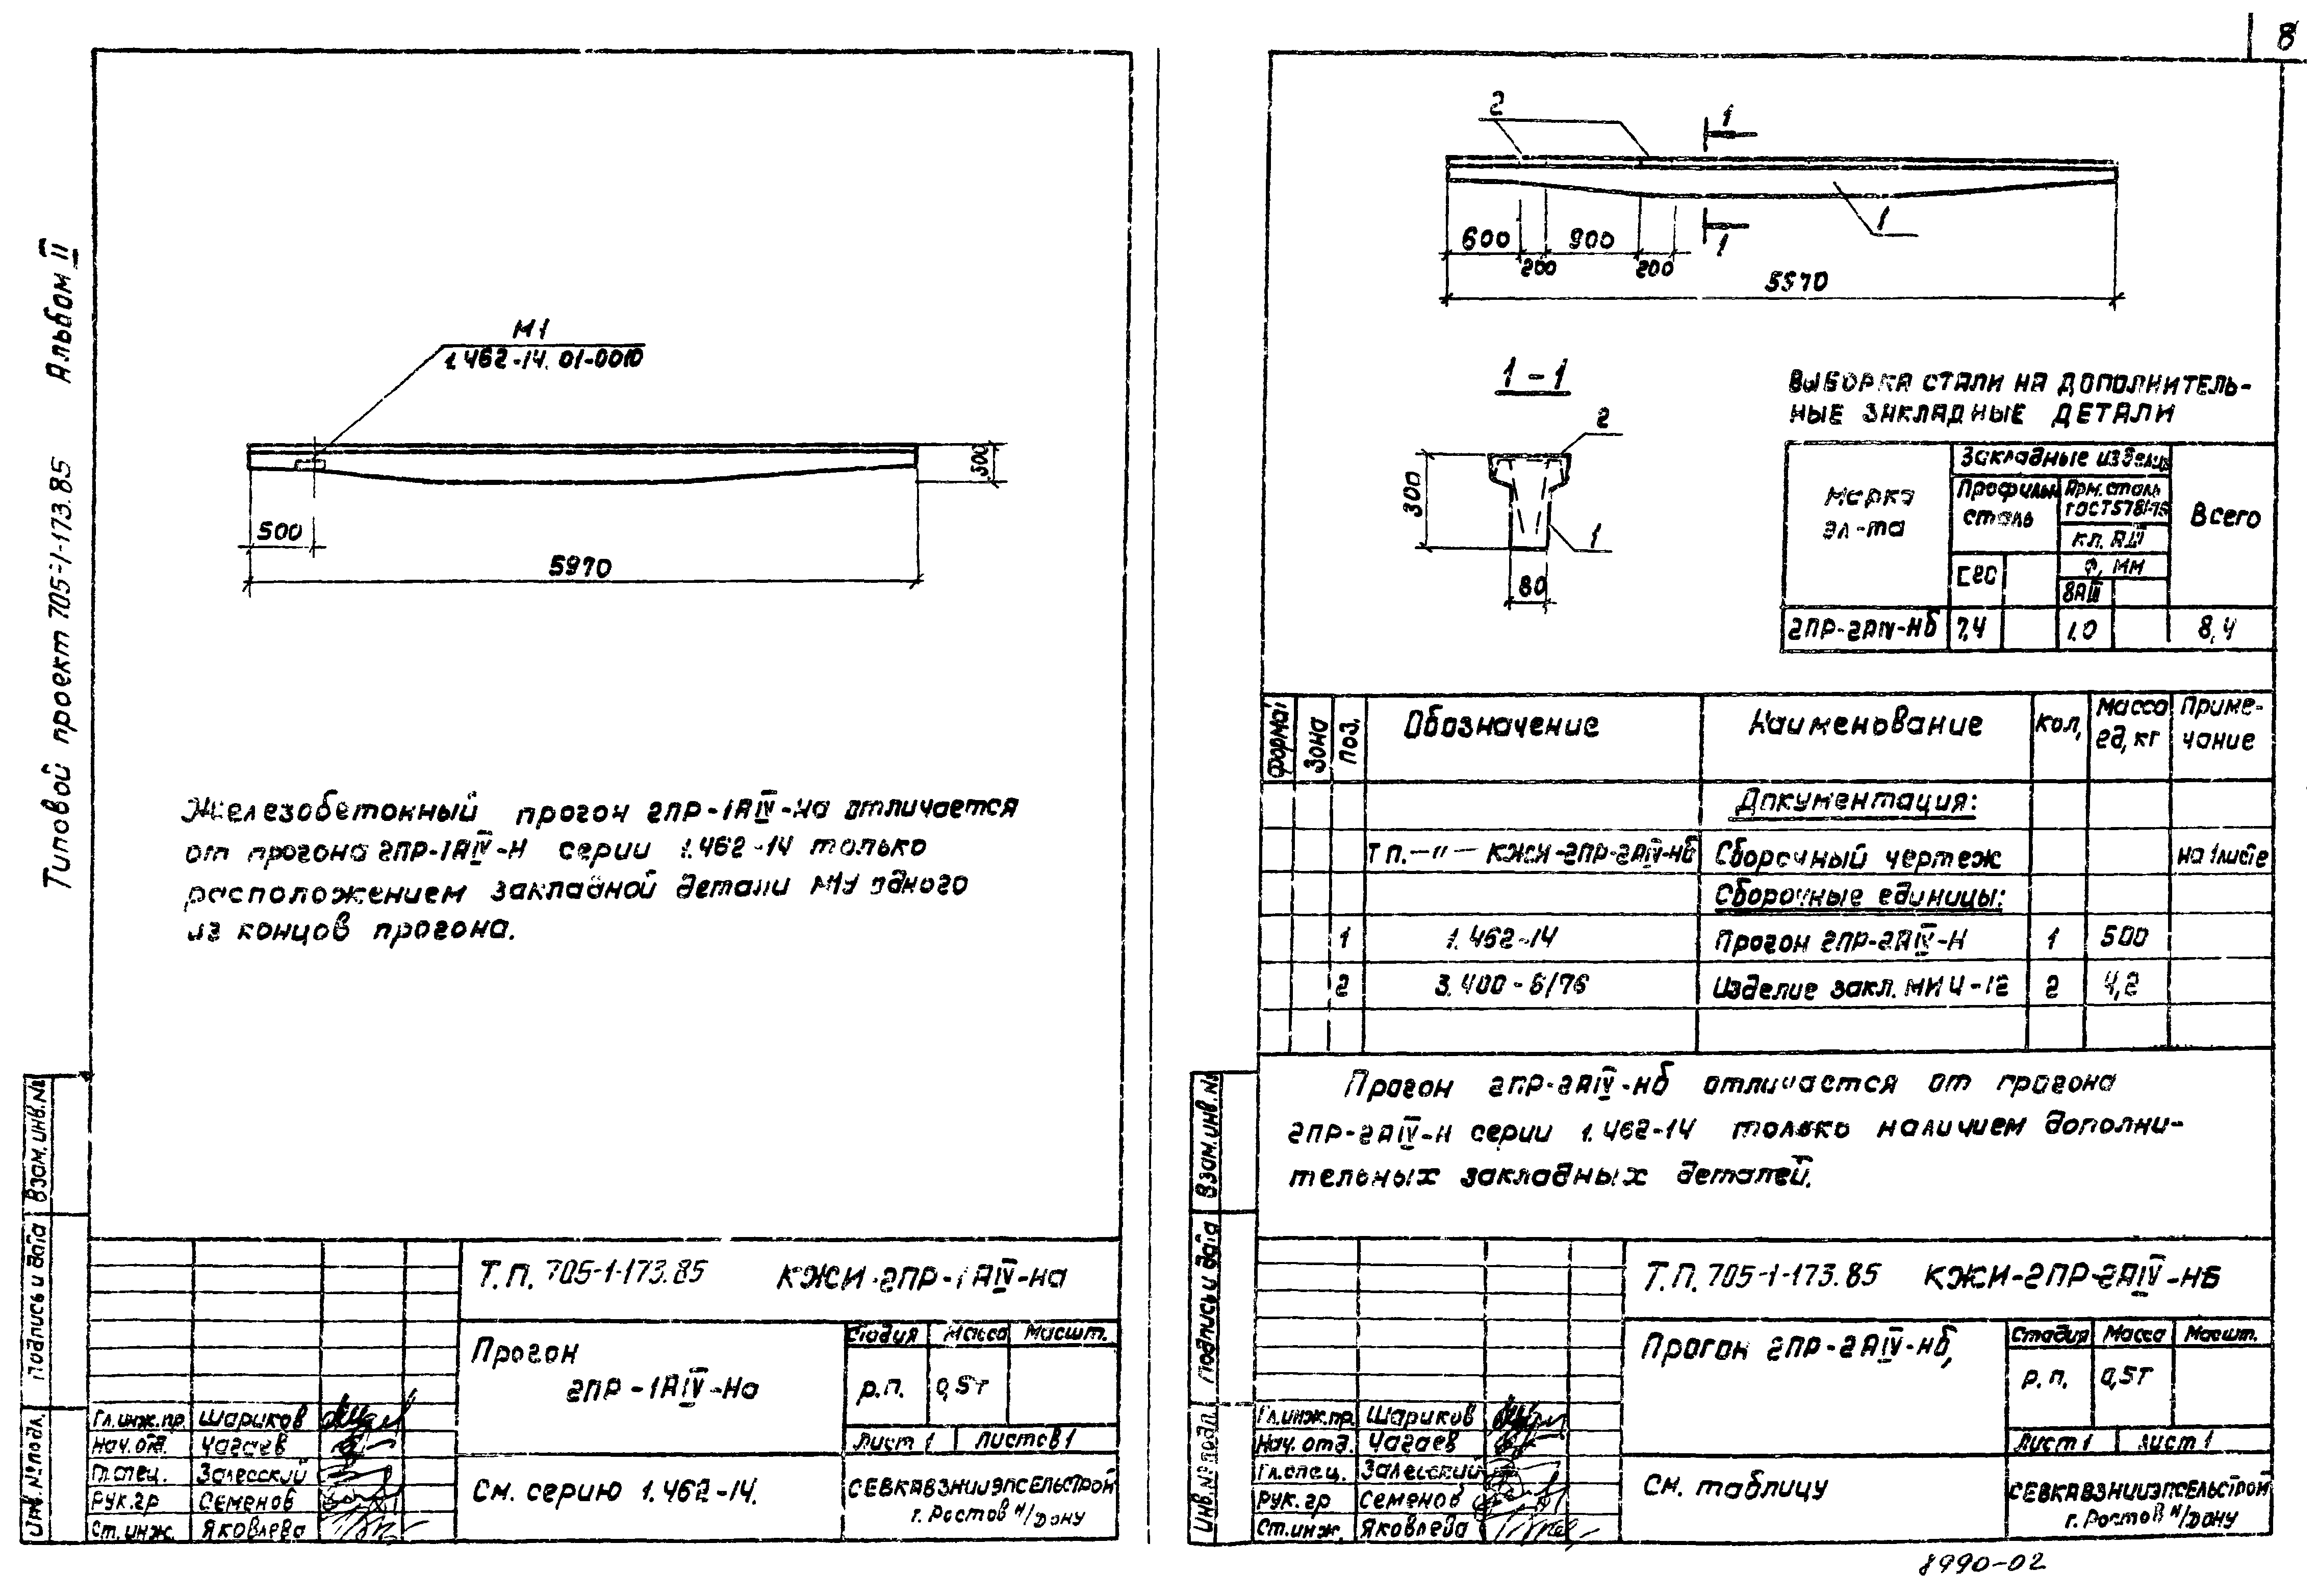 8
Типовой проект 705-1-173.85 Альбом II
М1
1.462-14.01-0010
300
500
5970
Железобетонный прогон 2ПР-1АIV-На отличается
от прогона 2ПР-1АIV-Н серии 1.462-14 только
расположением закладной детали М1 у одного
из концов прогона.
Взам.инв.№
Подпись и дата
Инв.№подл.
Т.П. 705-1-173.85 КЖИ-2ПР-1АIV-На
Прогон
2ПР-1АIV-На
Стадия Масса Масшт.
р.п. 0,5т
Лист 1 Листов 1
Гл.инж.пр. Шариков
Нач.отд. Чагаев
Гл.спец. Залесский
Рук.гр Семенов
Ст.инж. Яковлева
См. серию 1.462-14.
СЕВКАВЗНИИЭПСЕЛЬСТРОЙ
г. Ростов н/Дону
2
1
1
600 900
200 200
1
5970
1-1
2
300
1
80
ВЫБОРКА СТАЛИ НА ДОПОЛНИТЕЛЬ-
НЫЕ ЗАКЛАДНЫЕ ДЕТАЛИ
Марка
эл-та
Закладные изделия
Профильн
сталь
Арм. сталь
ГОСТ5781-75
Всего
кл. АIII
Ф, мм
[20
8АIII
2ПР-2АIV-Нб 7,4 1,0 8,4
Формат Зона Поз. Обозначение Наименование Кол, Масса ед, кг Приме-чание
Документация:
Т П.-"- КЖИ-2ПР-2АIV-Нб Сборочный чертеж на 1листе
Сборочные единицы:
1 1.462-14 Прогон 2ПР-2АIV-Н 1 500
2 3.400-6/76 Изделие закл. МИ 4-12 2 4,2
Прогон 2ПР-2АIV-Нб отличается от прогона
2ПР-2АIV-Н серии 1.462-14 только наличием дополни-
тельных закладных деталей.
Взам.инв.№
Подпись и дата
Инв.№подл.
Т.П. 705-1-173.85 КЖИ-2ПР-2АIV-НБ
Прогон 2ПР-2АIV-Нб,
Стадия Масса Масшт.
р.п. 0,5т
Лист 1 Лист 1
Гл.инж.пр. Шариков
Нач. отд. Чагаев
Гл.спец. Залесский
Рук.гр Семенов
Ст.инж. Яковлева
См. таблицу
СЕВКАВЗНИИЭПСЕЛЬСТРОЙ
г. Ростов н/Дону
8990-02